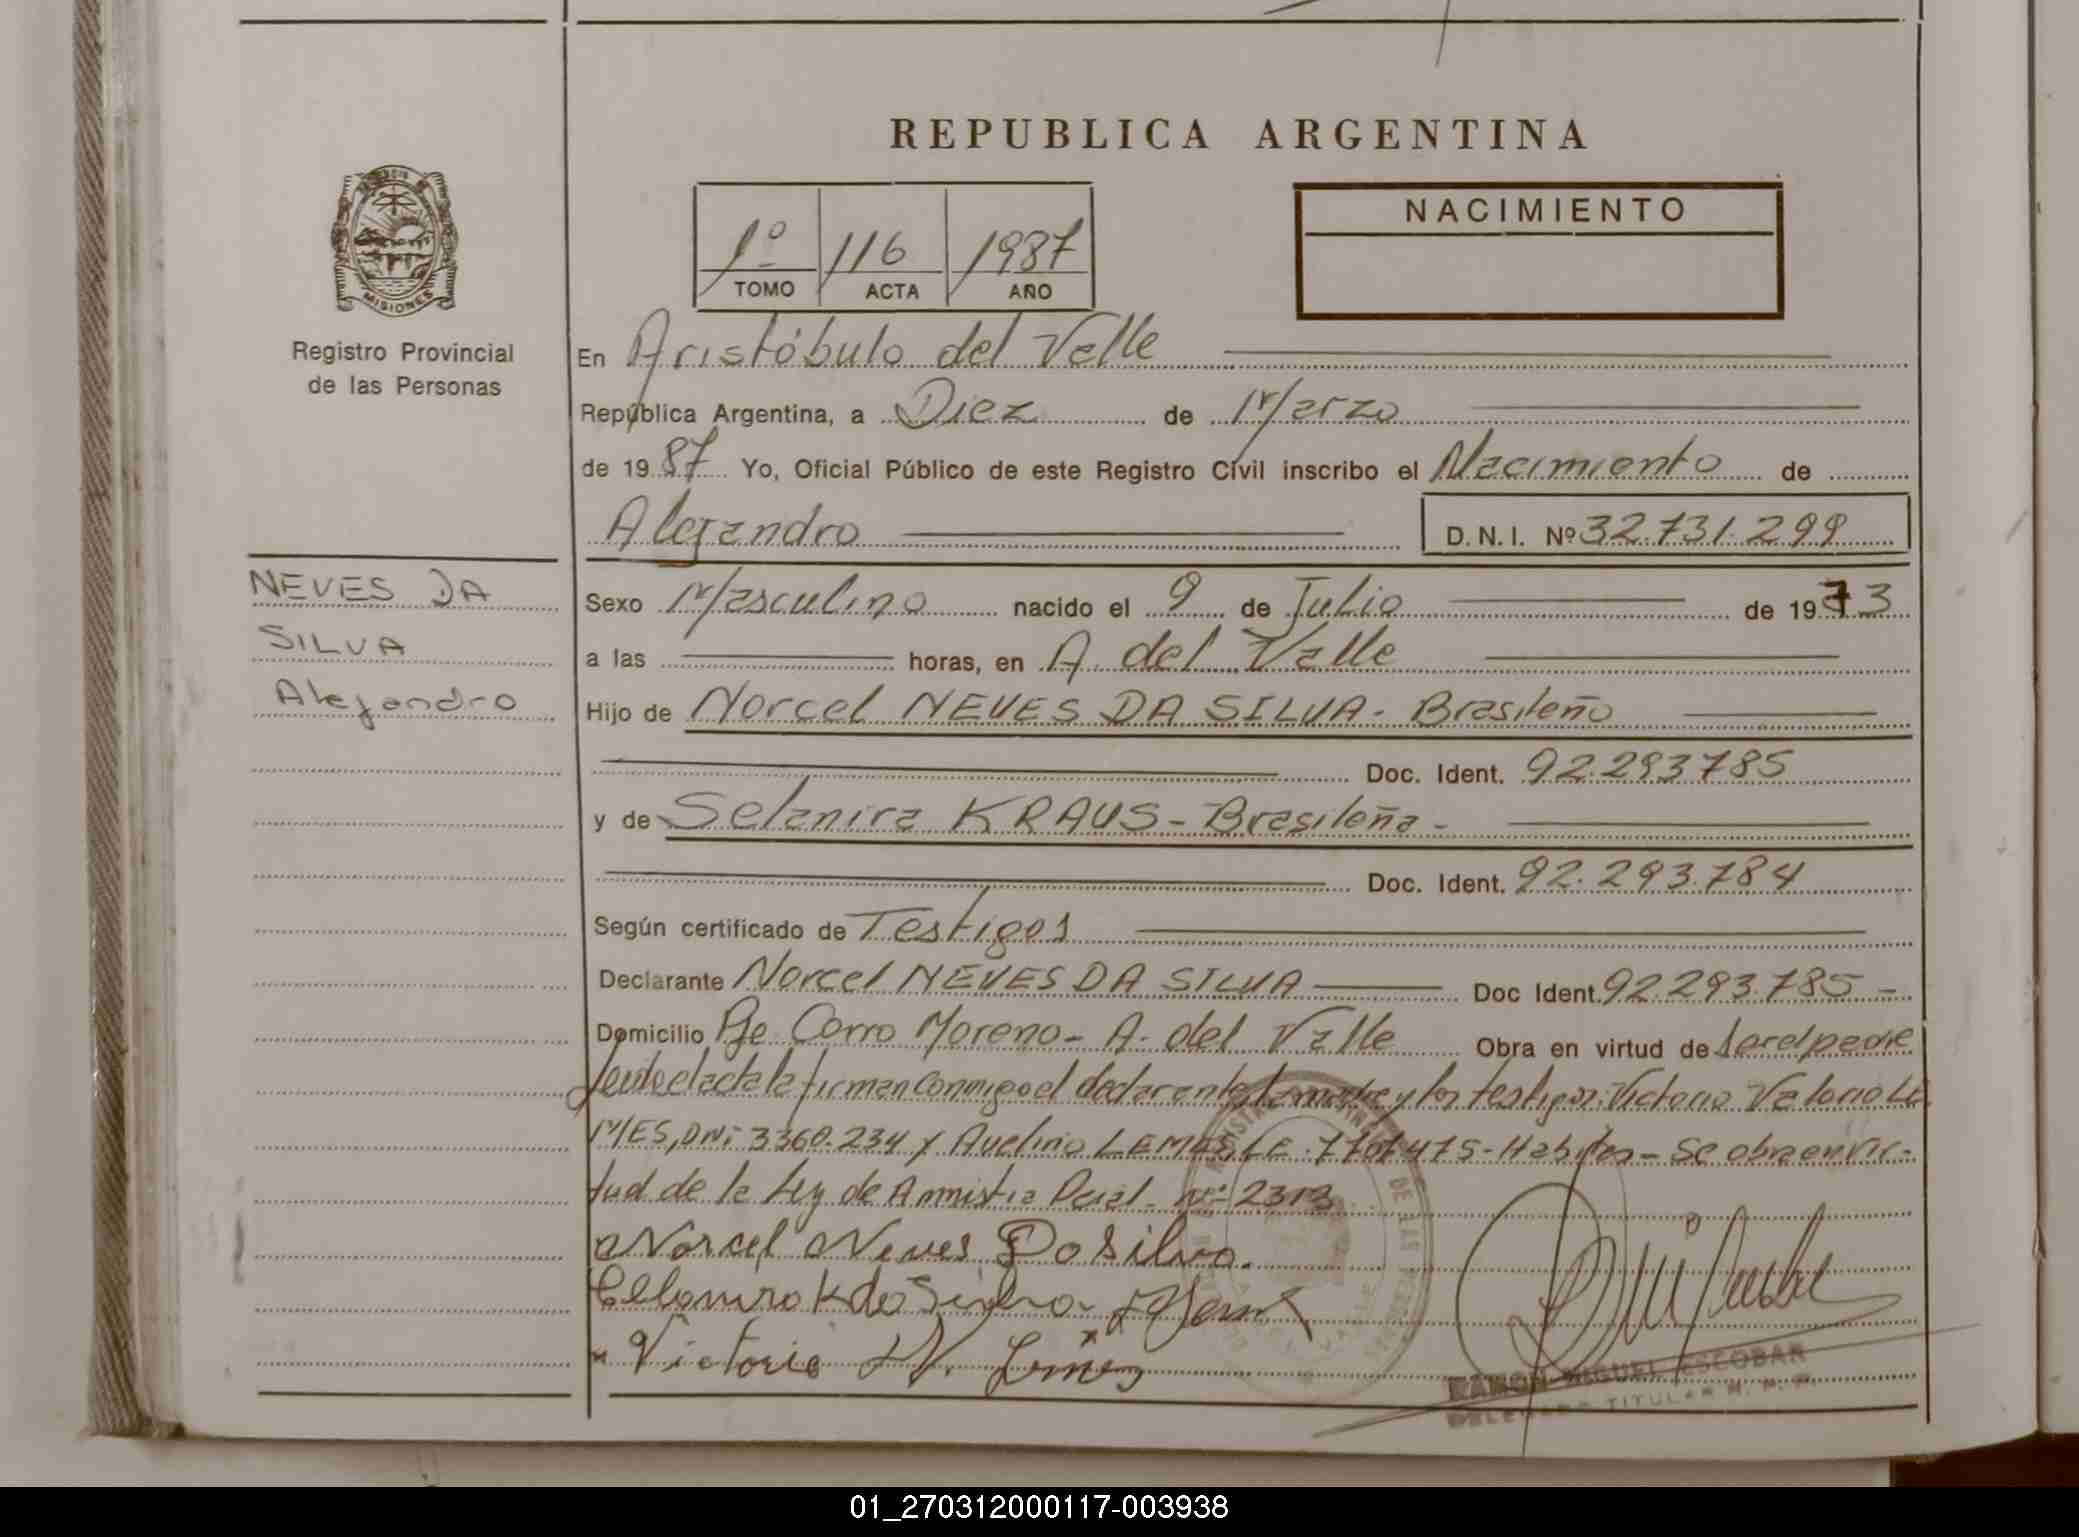 REPUBLICA ARGENTINA
1º 116 1987
TOMO ACTA AÑO
NACIMIENTO
MISIONES
Registro Provincial
de las Personas
En Aristóbulo del Valle
República Argentina, a Diez de Marzo
de 1987 Yo, Oficial Público de este Registro Civil inscribo el Nacimiento de
Alejandro D.N.I. Nº 32.731.299
NEVES DA
SILVA
Alejandro
Sexo Masculino nacido el 9 de Julio de 1973
a las horas, en A. del Valle
Hijo de Norcel NEVES DA SILVA - Brasileño
Doc. Ident. 92.293785
y de Selanira KRAUS - Brasileña -
Doc. Ident. 92.293.784
Según certificado de Testigos
Declarante Norcel NEVES DA SILVA Doc Ident. 92.293.785 -
Domicilio Pje Cerro Moreno - A. del Valle Obra en virtud de ser el padre
leída el acta la firman conmigo el declarante la madre y los testigos: Victorio Valerio LE
MES, DNi 3360.234 y Avelino LEMES, LE. - Habiles - Se obra en vir-
tud de la Ley de Amnistia Parcial - Nº 2313
Norcel Neves Da Silva.
Victorio V. Lemes
RAMON MIGUEL ESCOBAR
DELEGADO TITULAR R. P. P.
01_270312000117-003938